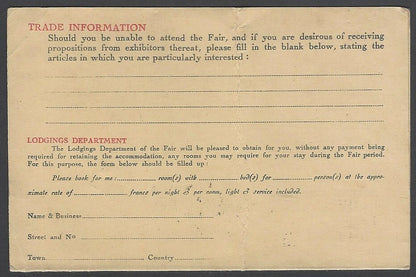 TRADE INFORMATION
Should you be unable to attend the Fair, and if you are desirous of receiving
propositions from exhibitors thereat, please fill in the blank below, stating the
articles in which you are particularly interested :
LODGINGS DEPARTMENT
The Lodgings Department of the Fair will be pleased to obtain for you, without any payment being
required for retaining the accommodation, any rooms you may require for your stay during the Fair period.
For this purpose, the form below should be filled up:
Please book for me: room(s) with bed(s) for person(s) at the appro-
ximate rate of francs per night & per room, light & service included.
Name & Business
Street and No
Town Country